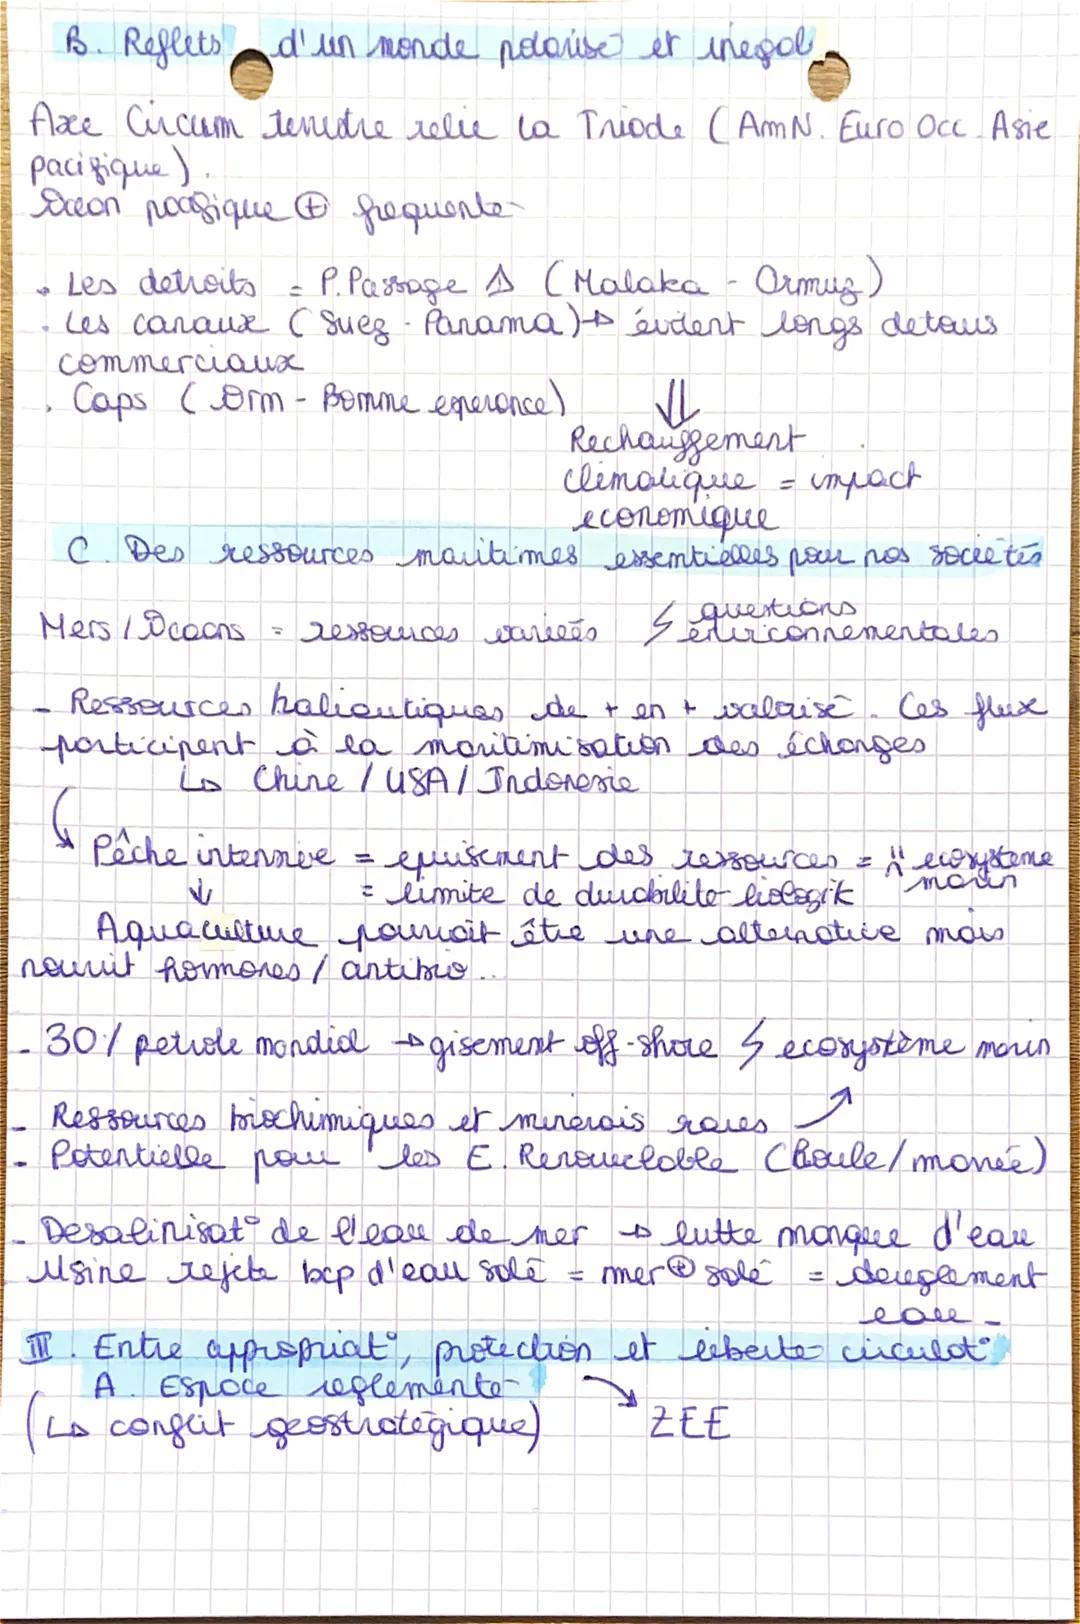 B. Reflets d'un monde polarisé et inégal
Axe Circum terrestre relie la Triade (AmN. Euro Occ. Asie
pacifique).
Océan pacifique ⊕ frequente
. Les detroits = P. Passage ⚠ (Malaka - Ormuz)
. Les canaux (Suez - Panama) → évitent longs detours
commerciaux
. Caps (Orm - Bonne esperance) ⇓
Rechauffement
climatique = impact
economique
C. Des ressources maritimes essentielles pour nos sociétés
Mers / Océans = ressources variées ↯ questions
environnementales
- Ressources halieutiques de + en + valorisé. Ces flux
participent à la maritimisation des échanges
↳ Chine / USA / Indonesie
↳ Pêche intensive = epuisement des ressources = ecosysteme
marin
↓ = limite de durabilité biologik
Aquaculture pourrait être une alternative mais
nourrit hormones / antibio...
- 30% petrole mondial → gisement off-shore ↯ ecosystème marin
- Ressources biochimiques et minerais rares ↗
- Potentielle pour les E. Renouvelable (Houle / marrée)
- Desalinisat° de l'eau de mer → lutte manque d'eau
Usine rejete bcp d'eau salé = mer ⊕ salé = dereglement
eau
III. Entre appropriat°, protection et liberte circulat°
A. Espace reglementé → ZEE
(↳ conflit geostratégique)